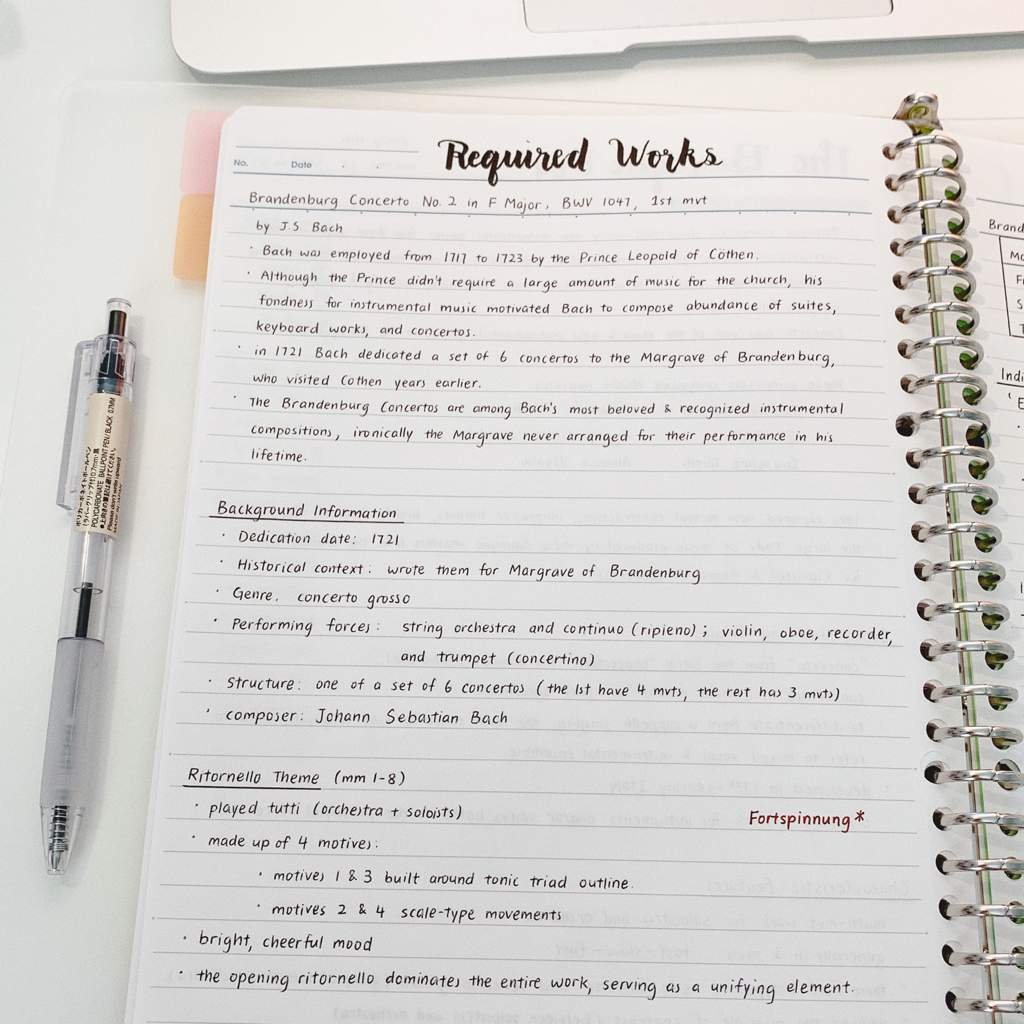 Required Works
No. Date
Brandenburg Concerto No. 2 in F Major, BWV 1047, 1st mvt
by J.S Bach
· Bach was employed from 1717 to 1723 by the Prince Leopold of Cöthen.
· Although the Prince didn't require a large amount of music for the church, his
fondness for instrumental music motivated Bach to compose abundance of suites,
keyboard works, and concertos.
· in 1721 Bach dedicated a set of 6 concertos to the Margrave of Brandenburg,
who visited Cothen years earlier.
· The Brandenburg Concertos are among Bach's most beloved & recognized instrumental
compositions, ironically the Margrave never arranged for their performance in his
lifetime.
Background Information
· Dedication date: 1721
· Historical context: wrote them for Margrave of Brandenburg
· Genre. concerto grosso
· Performing forces: string orchestra and continuo (ripieno); violin, oboe, recorder,
and trumpet (concertino)
· Structure: one of a set of 6 concertos (the 1st have 4 mvts, the rest has 3 mvts)
· composer: Johann Sebastian Bach
Ritornello Theme (mm 1-8)
· played tutti (orchestra + soloists)
Fortspinnung*
· made up of 4 motives:
· motives 1 & 3 built around tonic triad outline.
· motives 2 & 4 scale-type movements
· bright, cheerful mood
· the opening ritornello dominates the entire work, serving as a unifying element.
Brand
Indi
POLYCARBONATE BALLPOINT PEN/BLACK 0.7MM